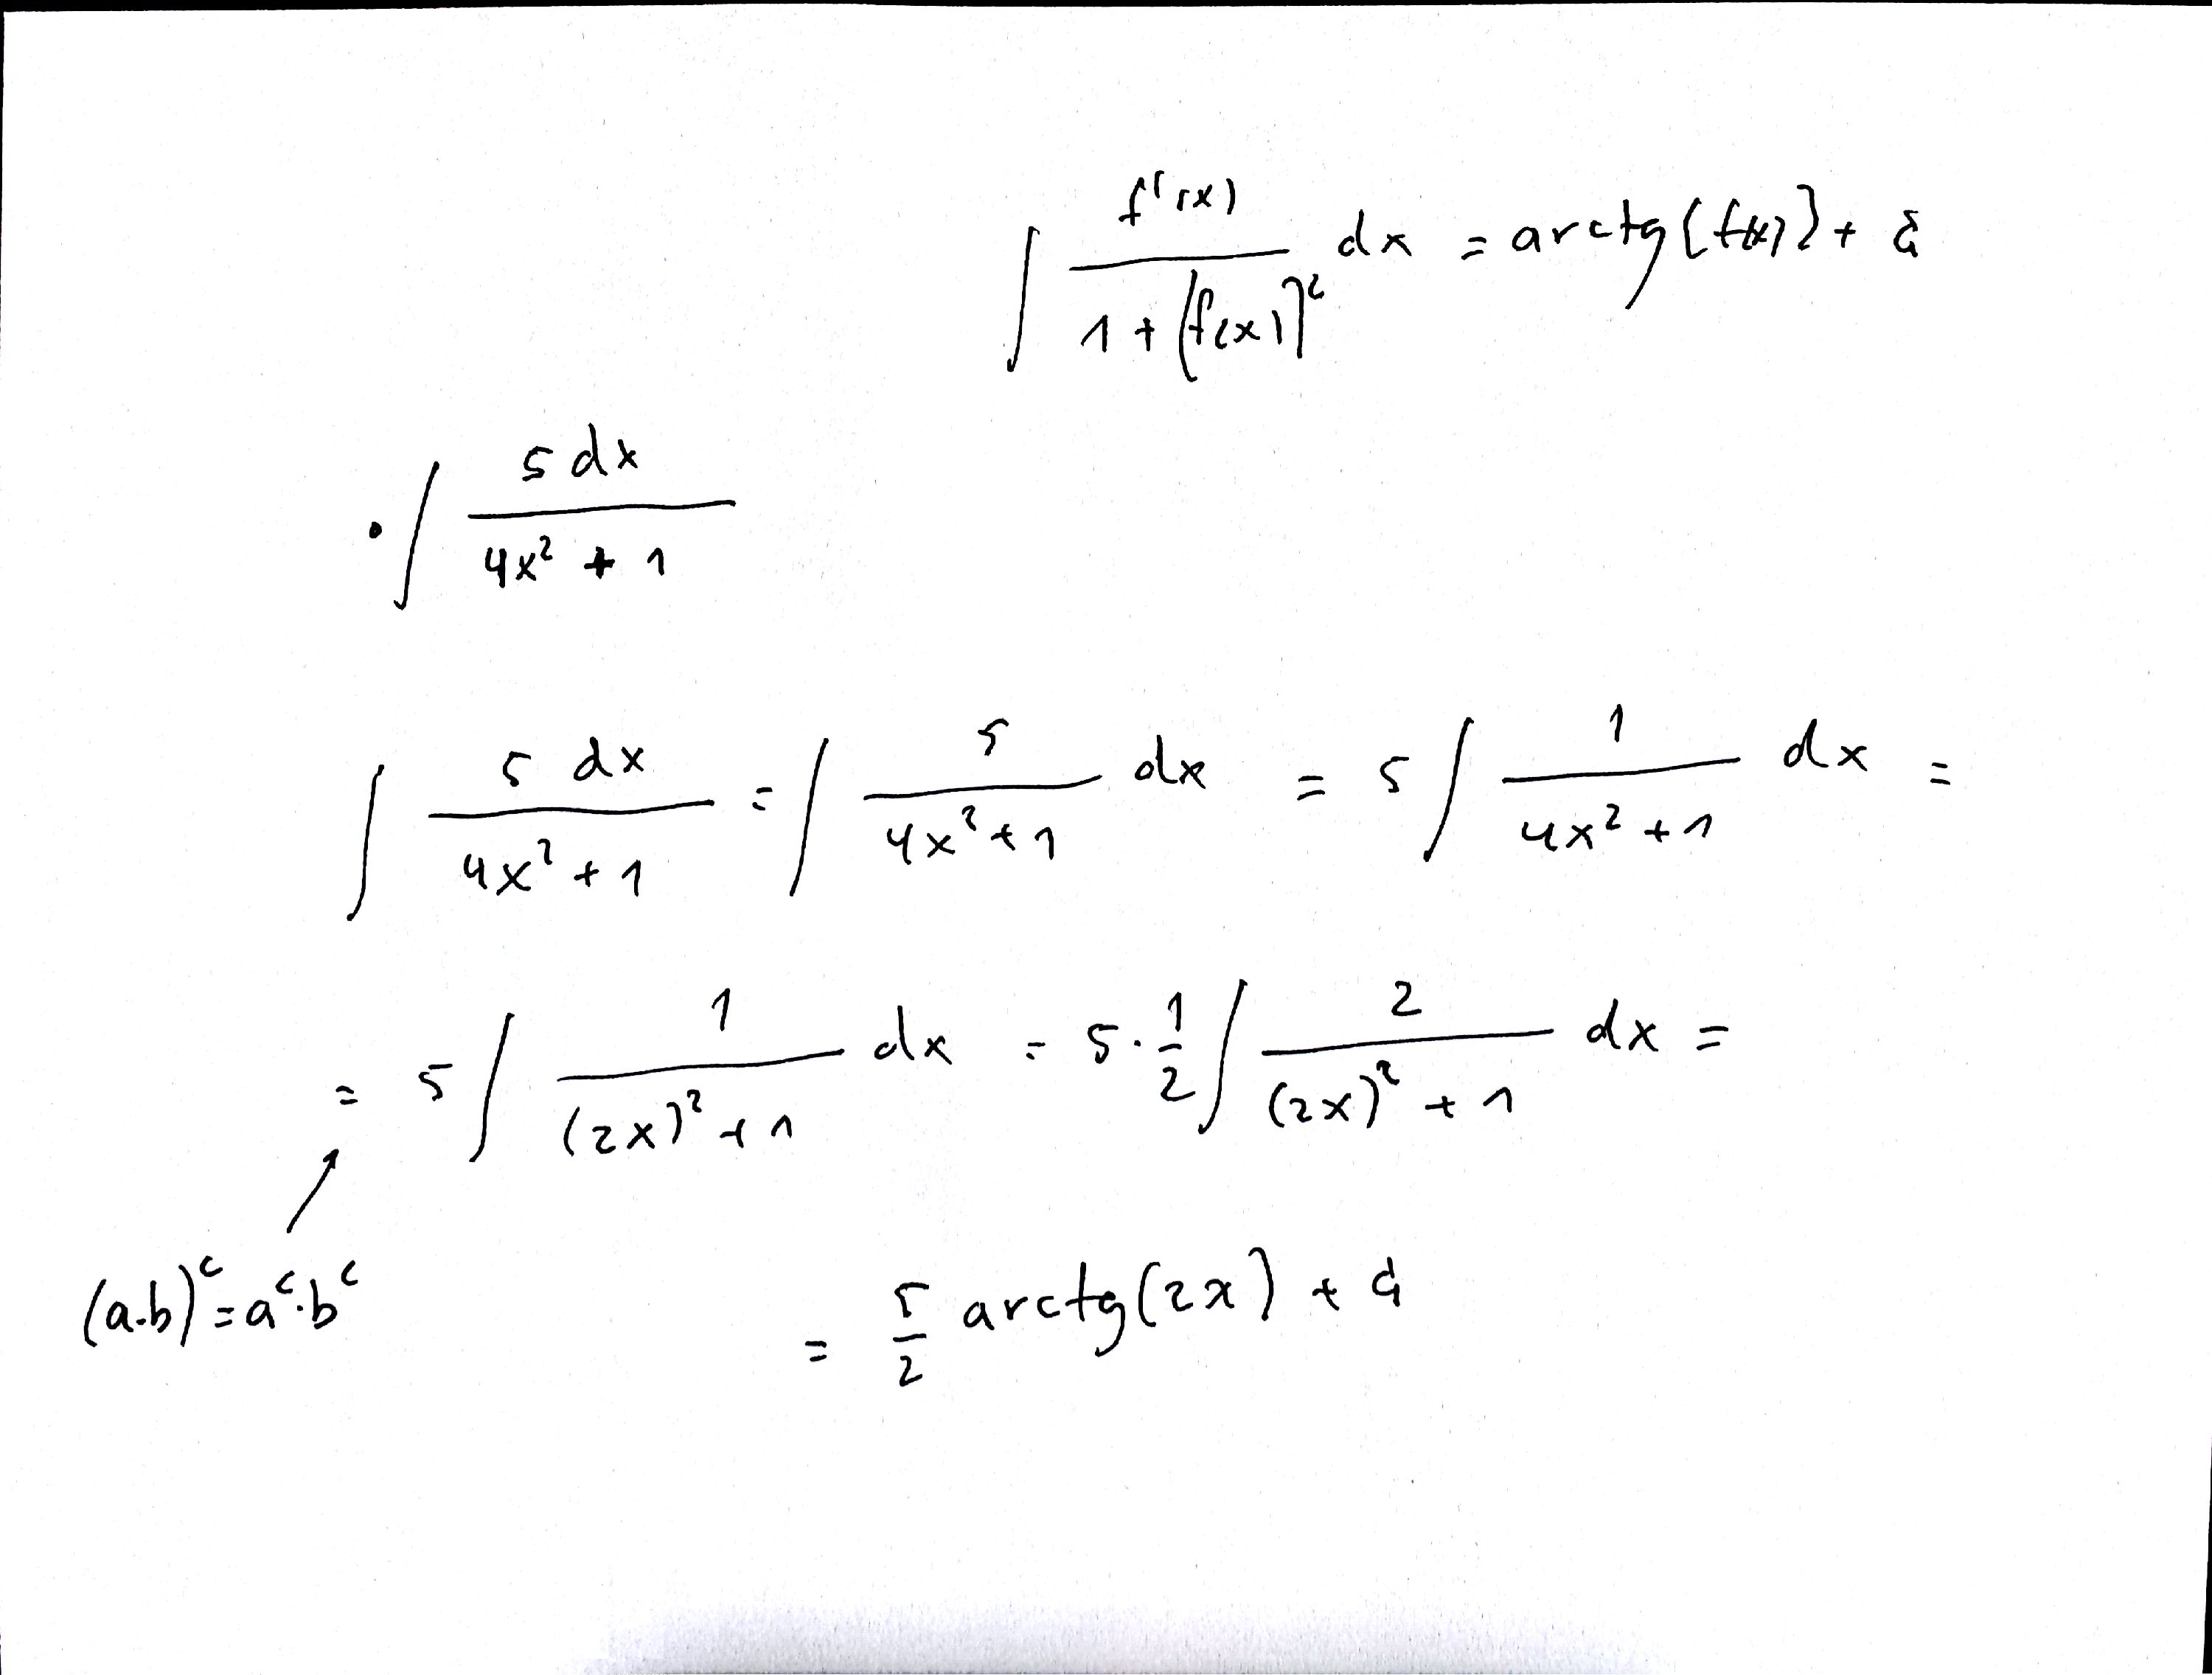 ∫ f'(x) / (1 + [f(x)]²) dx = arctg(f(x)) + C
• ∫ 5 dx / (4x² + 1)
∫ 5 dx / (4x² + 1) = ∫ 5 / (4x² + 1) dx = 5 ∫ 1 / (4x² + 1) dx =
= 5 ∫ 1 / ((2x)² + 1) dx = 5 · 1/2 ∫ 2 / ((2x)² + 1) dx =
(a·b)ᶜ = aᶜ·bᶜ
= 5/2 arctg(2x) + C